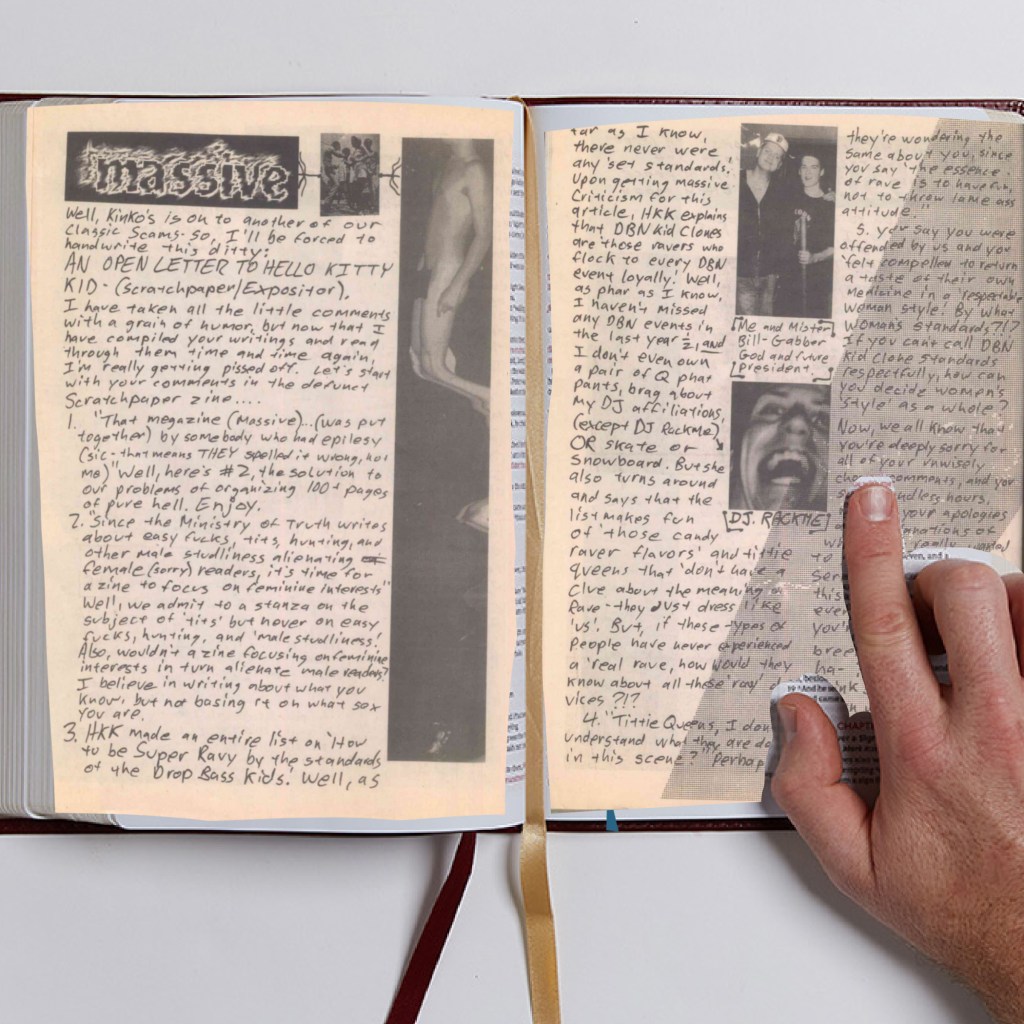 massive
Well, Kinko's is on to another of our
Classic Scams- so, I'll be forced to
handwrite this ditty:
AN OPEN LETTER TO HELLO KITTY
KID- (Scratchpaper/Expositor),
I have taken all the little comments
with a grain of humor, but now that I
have compiled your writings and read
through them time and time again,
I'm really getting pissed off. Let's start
with your comments in the defunct
Scratchpaper zine....
1. "That megazine (Massive)...(was put
together) by somebody who had epilesy
(sic- that means THEY spelled it wrong, not
me)" Well, here's #2, the solution to
our problems of organizing 100+ pages
of pure hell. Enjoy.
2. "Since the Ministry of Truth writes
about easy fucks, tits, hunting, and
other male studliness alienating
female (sorry) readers, it's time for
a zine to focus on feminine interests"
Well, we admit to a stanza on the
subject of 'tits' but never on easy
fucks, hunting, and 'male studliness!
Also, wouldn't a zine focusing on feminine
interests in turn alienate male readers?
I believe in writing about what you
know, but not basing it on what sox
you are.
3. HKK made an entire list on 'How
to be Super Ravy by the standards
of the Drop Bass Kids.' Well, as
far as I know,
there never were
any 'set standards.'
Upon getting massive
Criticism for this
article, HKK explains
that DBN Kid Clones
are those ravers who
flock to every DBN
event loyally. Well,
as phar as I know,
I haven't missed
any DBN events in
the last year ½, and
I don't even own
a pair of Q phat
pants, brag about
my DJ affiliations,
(except DJ Rackme)
OR skate or
Snowboard. But she
also turns around
and says that the
list makes fun
of 'those candy
raver flavors' and tittie
queens that 'don't have a
Clue about the meaning of
Rave- they Just dress like
'us'. But, if these types of
People have never experienced
a 'real rave, how would they
know about all these 'rave'
vices?!?
4. "Tittie Queens, I don
understand what they are do
in this scene?" Perhap
Me and Mister
Bill- Gabber
God and future
president.
[DJ. RACKME]
they're wondering the
same about you, since
you say 'the essence
of rave is to have fun,
not to throw lame ass
attitude.
5. you say you were
offended by us and you
'felt compelled to return
a taste of their own
Medicine in a 'respectable
woman style! By what
Woman's standards?!?
If you can't call DBN
Kid Clone Standards
respectfully, how can
you decide women's
'style' as a whole?
Now, we all know that
you're deeply sorry for
all of your unwisely
comments, and your
endless hours,
your apologies
of
really
to
this
you'r
bree
ha-
CHAPT